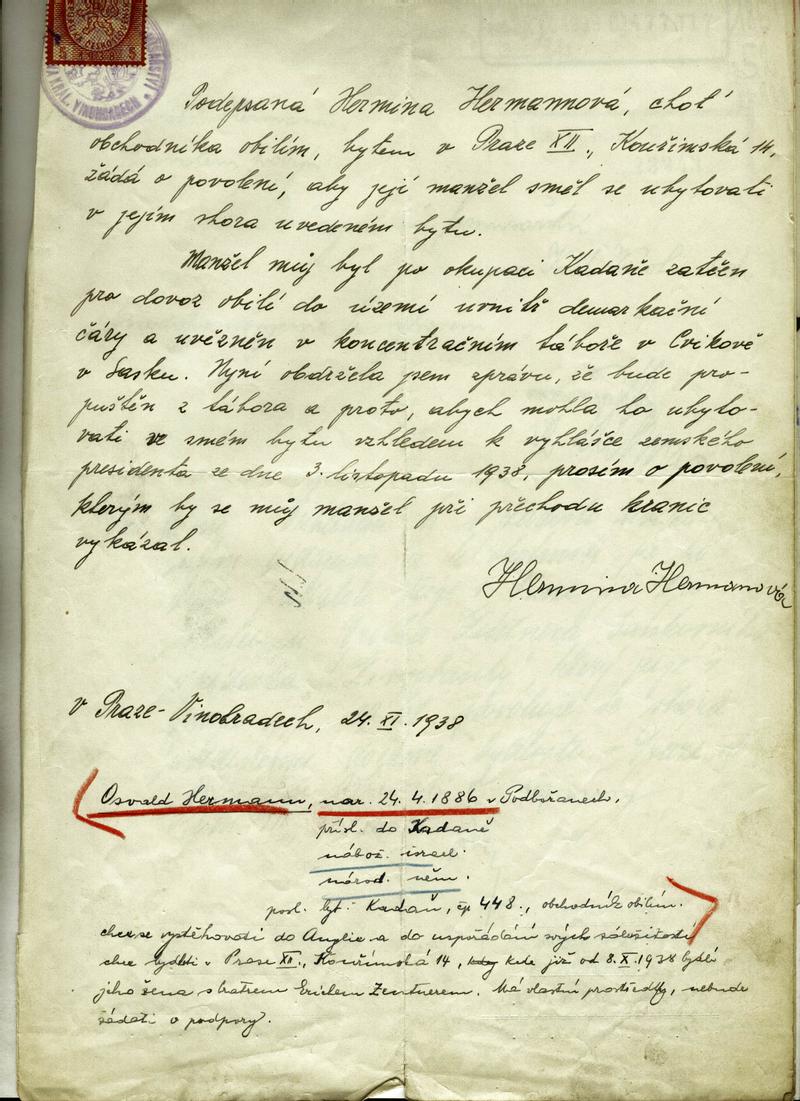 KRÁL. VINOHRADECH
Podepsaná Hermina Hermannová, choť
obchodníka obilím, bytem v Praze XII., Kouřimská 14,
žádá o povolení, aby její manžel směl se ubytovati
v jejím shora uvedeném bytu.
Manžel můj byl po okupaci Kadaně zatčen
pro dovoz obilí do území uvnitř demarkační
čáry a uvězněn v koncentračním táboře v Cvikově
v Sasku. Nyní obdržela jsem zprávu, že bude pro-
puštěn z tábora a proto, abych mohla ho ubyto-
vati ve svém bytu vzhledem k vyhlášce zemského
presidenta ze dne 3. listopadu 1938, prosím o povolení,
kterým by se můj manžel při přechodu hranic
vykázal.
Hermina Hermanová
V Praze-Vinohradech, 24. XI. 1938
Osvald Hermann, nar. 24. 4. 1886 v Podbořanech,
přísl. do Kadaně
nábož. israel.
národ. něm.
posl. byt. Kadaň, čp 448., obchodník obilím.
chce se vystěhovati do Anglie a do uspořádání svých záležitostí
chce bydleti v Praze XII., Kouřimská 14, kdy kde již od 8. X. 1938 bydlí
jeho žena s bratrem Erichem Zentnerem. Má vlastní prostředky, nebude
žádati o podpory.